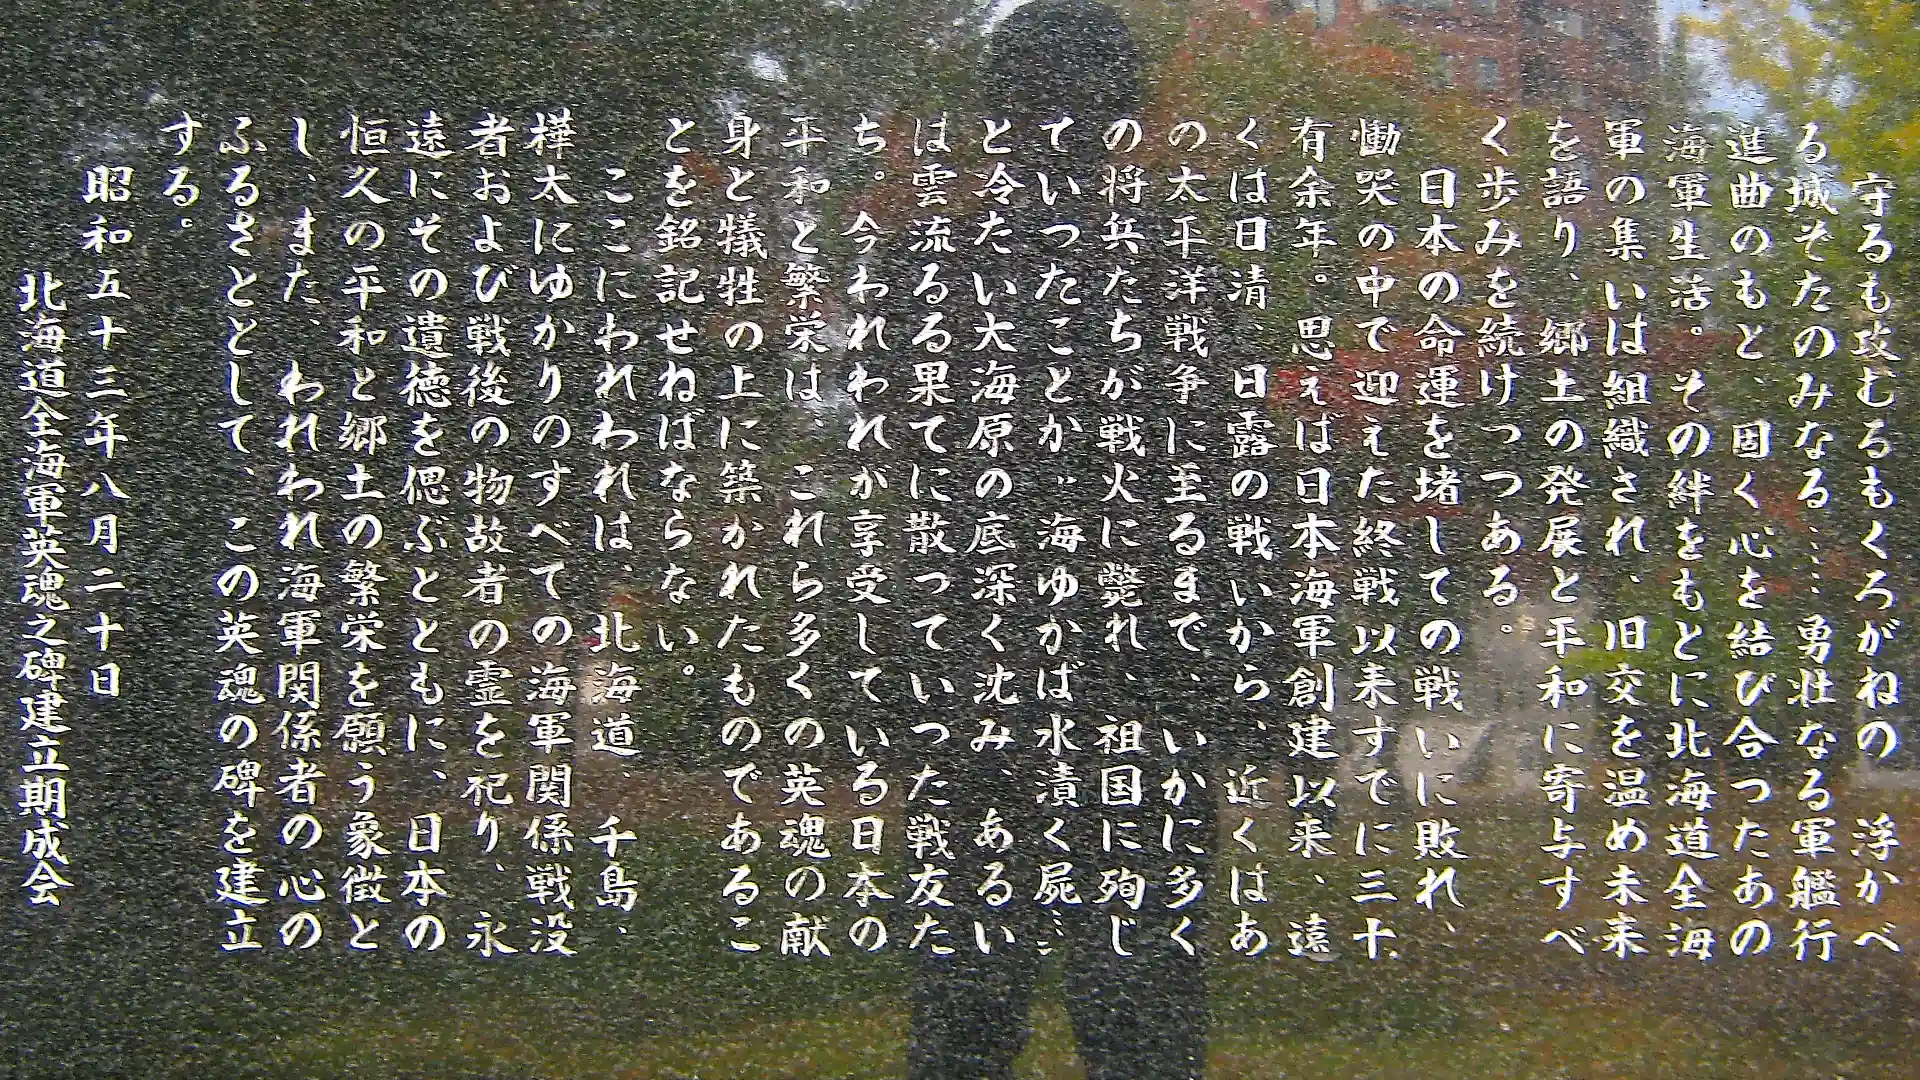 守るも攻むるもくろがねの　浮かべ
る城ぞたのみなる……勇壮なる軍艦行
進曲のもと、固く心を結び合つたあの
海軍生活。その絆をもとに北海道全海
軍の集いは組織され、旧交を温め未来
を語り、郷土の発展と平和に寄与すべ
く歩みを続けつつある。
日本の命運を堵しての戦いに敗れ、
慟哭の中で迎えた終戦以来すでに三十
有余年。思えば日本海軍創建以来、遠
くは日清、日露の戦いから、近くはあ
の太平洋戦争に至るまで、いかに多く
の将兵たちが戦火に斃れ、祖国に殉じ
ていつたことか〝海ゆかば水漬く屍……
と冷たい大海原の底深く沈み、あるい
は雲流るる果てに散つていつた戦友た
ち。今われわれが享受している日本の
平和と繁栄は、これら多くの英魂の献
身と犠牲の上に築かれたものであるこ
とを銘記せねばならない。
ここにわれわれは、北海道、千島、
樺太にゆかりのすべての海軍関係戦没
者および戦後の物故者の霊を祀り、永
遠にその遺徳を偲ぶとともに、日本の
恒久の平和と郷土の繁栄を願う象徴と
し、また、われわれ海軍関係者の心の
ふるさととして、この英魂の碑を建立
する。
昭和五十三年八月二十日
北海道全海軍英魂之碑建立期成会